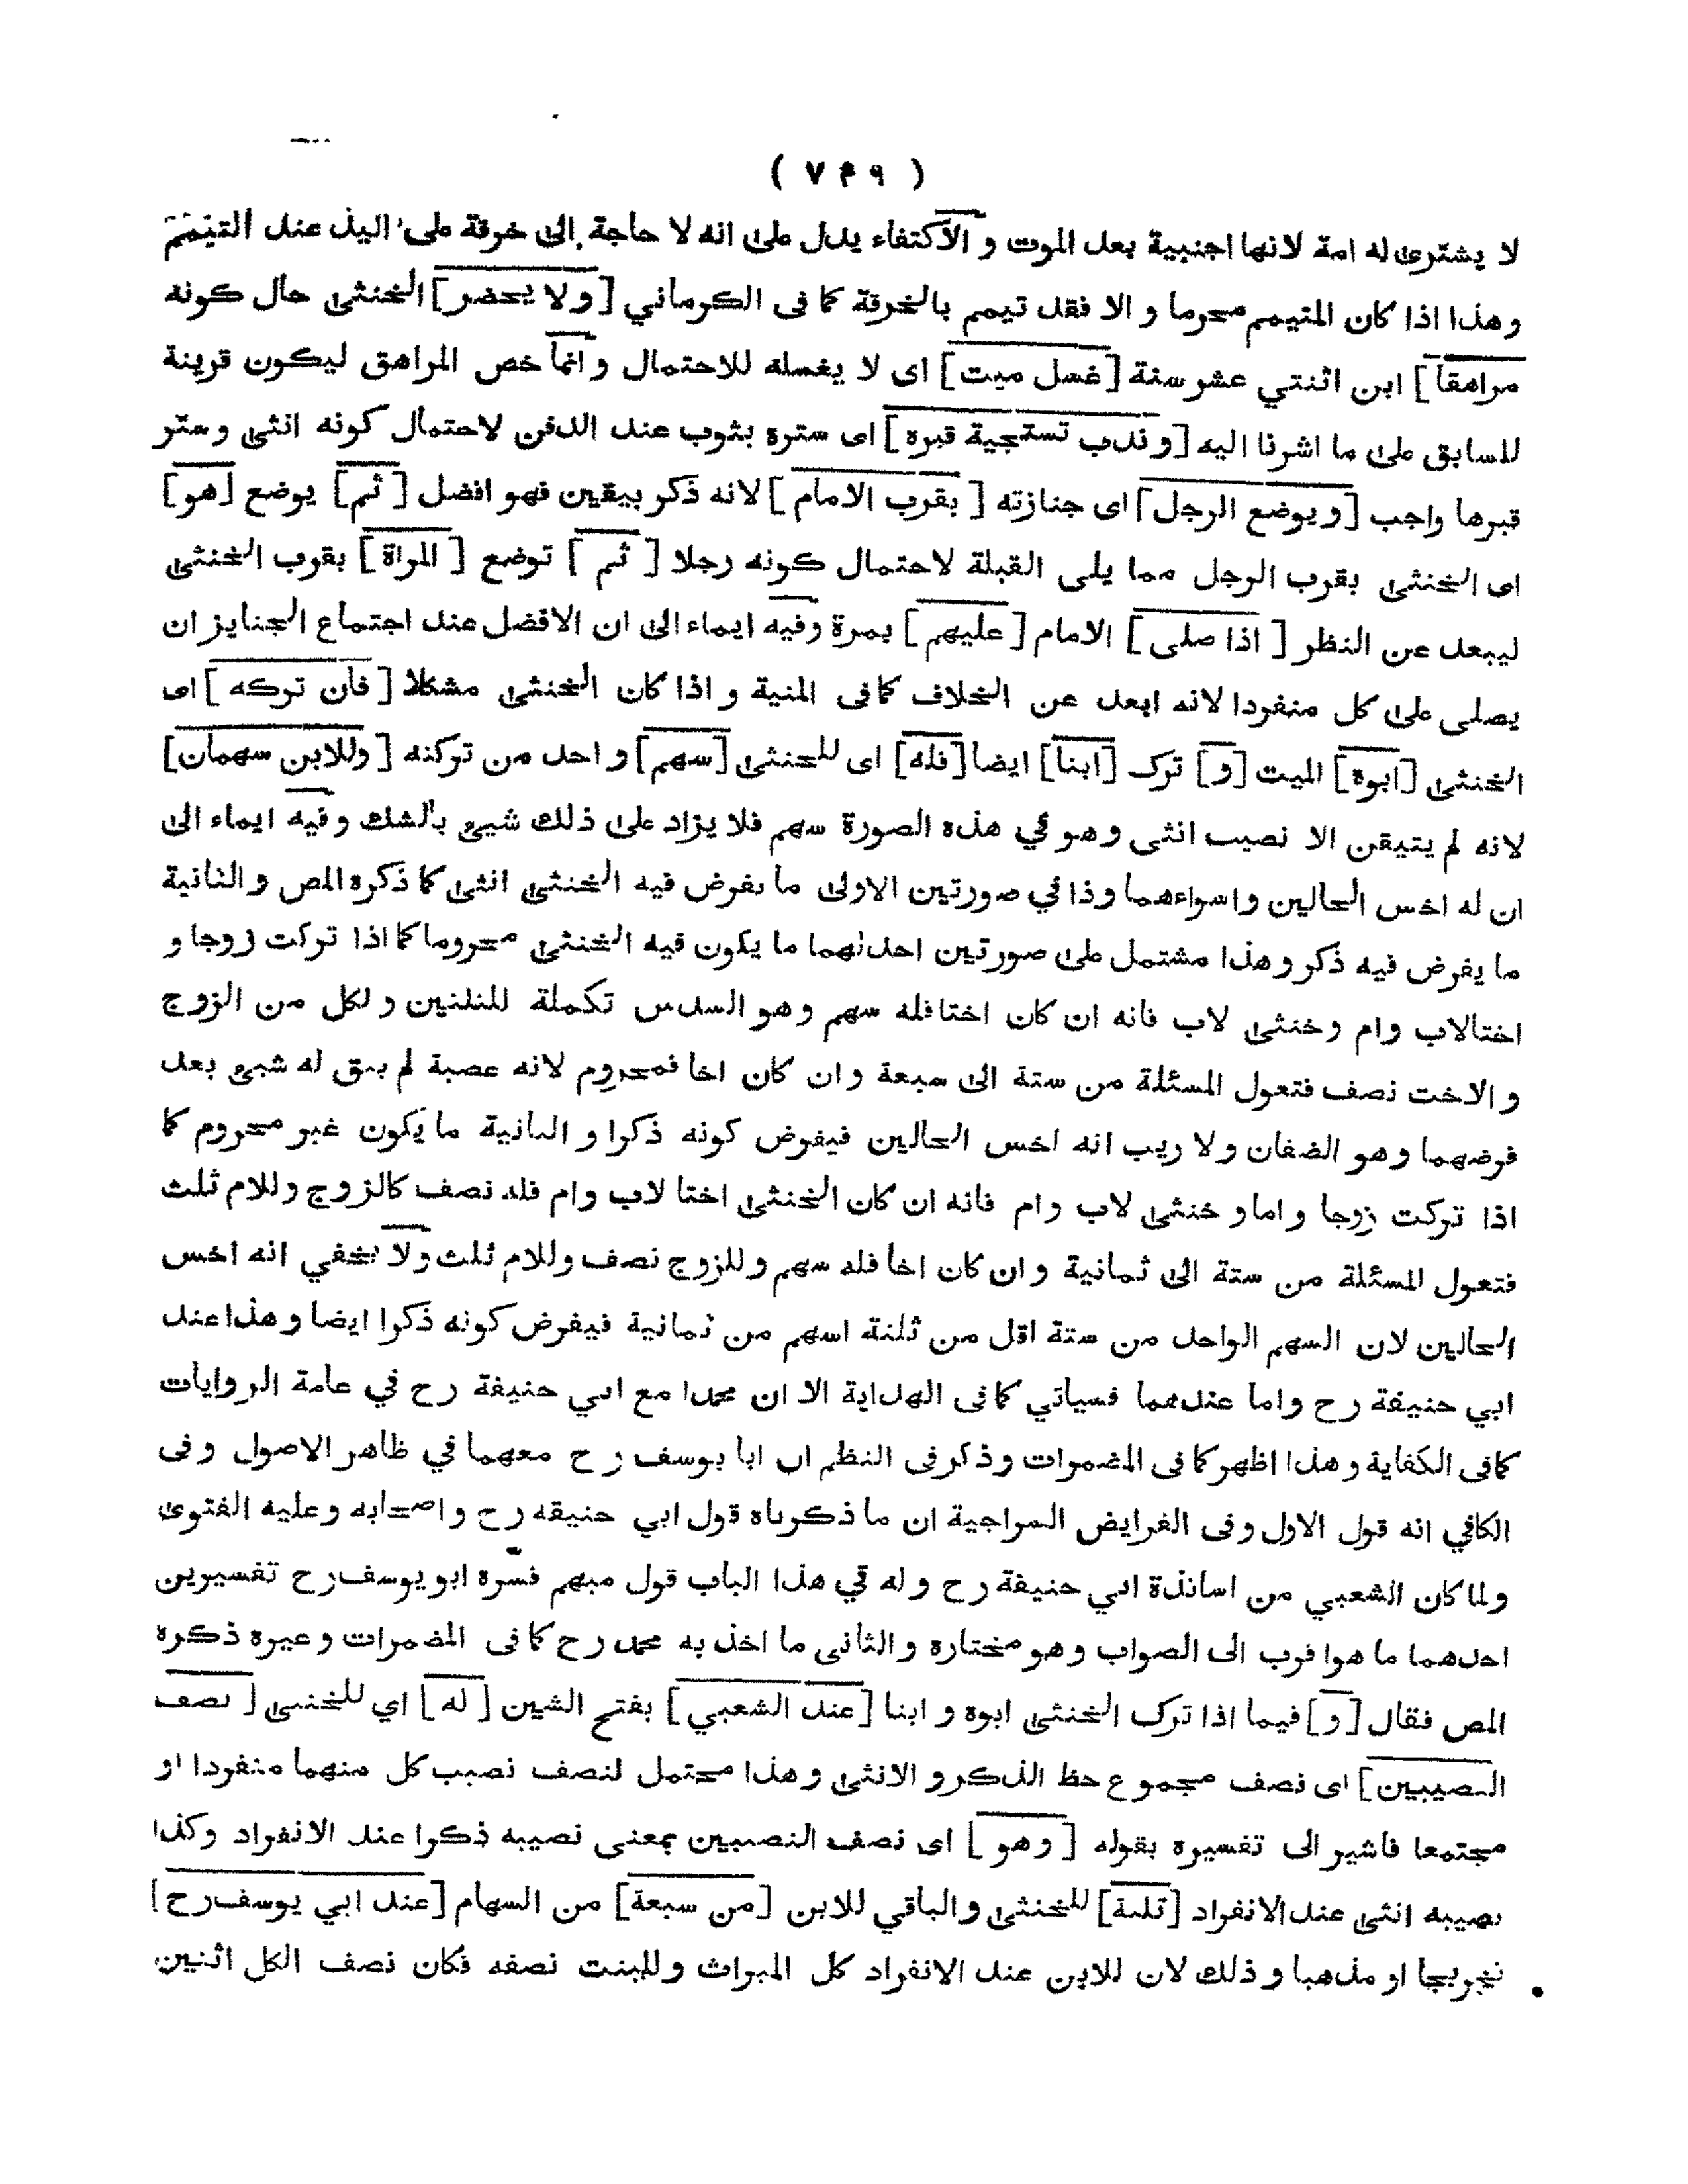 ( ٧٤٩ )
لا يشترى له امة لانها اجنبية بعد الموت و الاكتفاء يدل على انه لا حاجة الى خرقة على اليد عند التيمم
وهذا اذا كان المتيمم محرما و الا فقد تيمم بالخرقة كما فى الكرماني [ولا يحضر] الخنثى حال كونه
مراهقا] ابن اثنتي عشر سنة [غسل ميت] اى لا يغسله للاحتمال و انما خص المراهق ليكون قرينة
للسابق على ما اشرنا اليه [و ندب تستجية قبره] اى ستره بثوب عند الدفن لاحتمال كونه انثى و ستر
قبرها واجب [و يوضع الرجل] اى جنازته [بقرب الامام] لانه ذكر بيقين فهو افضل [ثم] يوضع [هو]
اى الخنثى بقرب الرجل مما يلى القبلة لاحتمال كونه رجلا [ثم] توضع [المراة] بقرب الخنثى
ليبعد عن النظر [اذا صلى] الامام [عليهم] بمرة وفيه ايماء الى ان الافضل عند اجتماع الجنايز ان
يصلى على كل منفردا لانه ابعد عن الخلاف كما فى المنية و اذا كان الخنثى مشكلا [فان تركه] اى
الخنثى [ابوه] الميت [و] ترك [ابنا] ايضا [فله] اى للخنثى [سهم] و احد من تركته [وللابن سهمان]
لانه لم يتيقن الا نصيب انثى وهو في هذه الصورة سهم فلا يزاد على ذلك شيئ بالشك وفيه ايماء الى
ان له اخس الحالين و اسواءهما وذا في صورتين الاولى ما يفرض فيه الخنثى انثى كما ذكره المص و الثانية
ما يفرض فيه ذكر و هذا مشتمل على صورتين احدٰهما ما يكون فيه الخنثى محروما كما اذا تركت زوجا و
اختالاب وام وخنثى لاب فانه ان كان اختا فله سهم وهو السدس تكملة للثلثين و لكل من الزوج
و الاخت نصف فتعول المسئلة من ستة الى سبعة و ان كان اخا فمحروم لانه عصبة لم يبق له شيئ بعد
فرضهما وهو النصفان ولا ريب انه اخس الحالين فيفرض كونه ذكرا و الثانية ما يكون غير محروم كما
اذا تركت زوجا و اما و خنثى لاب وام فانه ان كان الخنثى اختا لاب وام فله نصف كالزوج وللام ثلث
فتعول المسئلة من ستة الى ثمانية و ان كان اخا فله سهم و للزوج نصف وللام ثلث ولا يخفي انه اخس
الحالين لان السهم الواحد من ستة اقل من ثلثة اسهم من ثمانية فيفرض كونه ذكرا ايضا و هذا عند
ابي حنيفة رح واما عندهما فسيأتي كما فى الهداية الا ان محمدا مع ابي حنيفة رح في عامة الروايات
كما فى الكفاية و هذا اظهر كما فى المضمرات وذكر فى النظم ان ابا يوسف رح معهما في ظاهر الاصول وفى
الكافي انه قول الاول وفى الفرايض السراجية ان ما ذكرناه قول ابي حنيفه رح و اصحابه وعليه الفتوى
ولما كان الشعبي من اساتذة ابي حنيفة رح و له في هذا الباب قول مبهم فسّره ابو يوسف رح تفسيرين
احدهما ما هو اقرب الى الصواب وهو مختاره و الثانى ما اخذ به محمد رح كما فى المضمرات و غيره ذكره
المص فقال [و] فيما اذا ترك الخنثى ابوه و ابنا [عند الشعبي] بفتح الشين [له] اي للخنثى [نصف
النصيبين] اى نصف مجموع حظ الذكر و الانثى وهذا محتمل لنصف نصيب كل منهما منفردا او
مجتمعا فاشير الى تفسيره بقوله [وهو] اى نصف النصيبين بمعنى نصيبه ذكرا عند الانفراد وكذا
نصيبه انثى عند الانفراد [ثلثة] للخنثى و الباقي للابن [من سبعة] من السهام [عند ابي يوسف رح]
تخريجا او مذهبا و ذلك لان للابن عند الانفراد كل الميراث و للبنت نصفه فكان نصف الكل اثنين